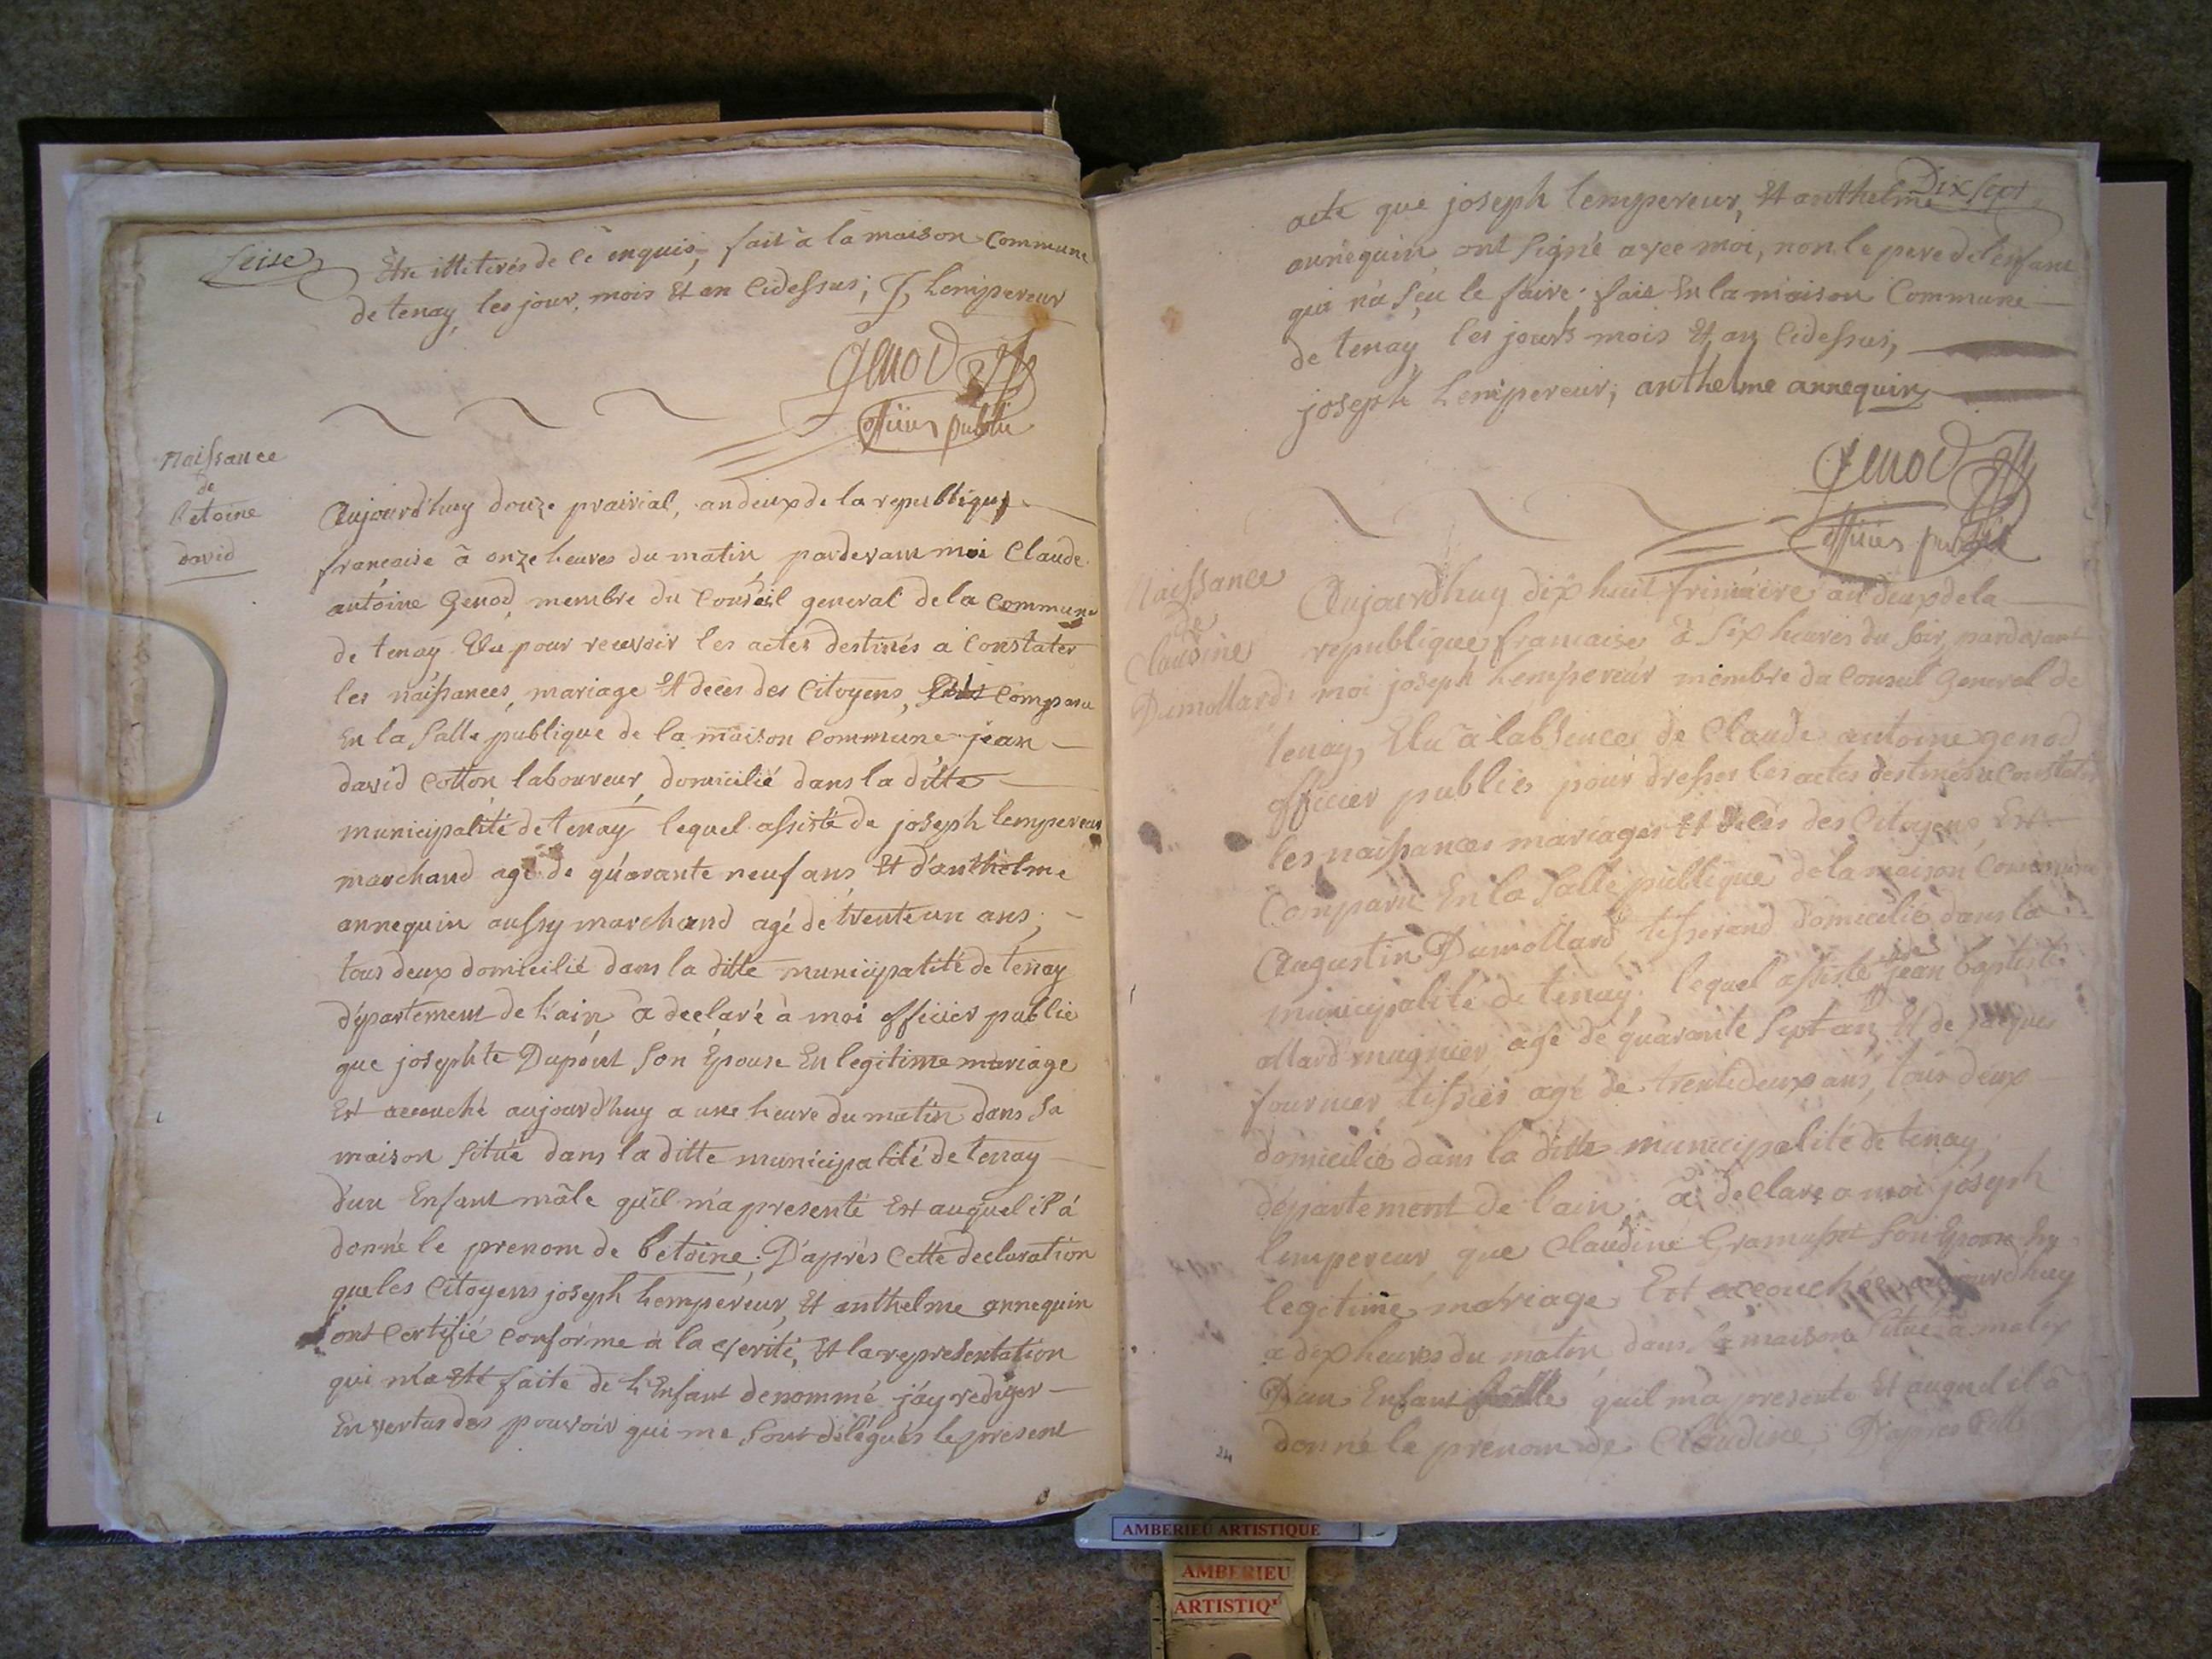 Seise
Etre illiterés de ce enquis, fait à la maison Commune
de tenay, les jour, mois Et an Cidessus; J, Lempereur
Genod
officier public
Naissance
de
betoine
david
Aujourd'huy douze prairial, an deux de la republique
francaise à onze heures du matin pardevant moi Claude
antoine Genod, membre du Conseil general de la Commune
de tenay Elu pour recevoir les actes destinés a Constater
les naissances, mariage Et deces des Citoyens, Comparu
En la salle publique de la maison commune jean
david Cotton laboureur, domicilié dans la ditte
municipalité de tenay lequel assisté de joseph lempereur
marchand agé de quarante neuf ans Et d'anthelme
annequin aussy marchand agé de trente un ans,
tous deux domicilié dans la ditte municipalité de tenay
département de l'ain a declaré à moi officier public
que josephte Dupont son Epouse En legitime mariage
Est accouché aujourd'huy a une heure du matin dans sa
maison situé dans la ditte municipalité de tenay
d'un Enfant mâle qu'il m'a presenté Et auquel il à
donné le prenom de betoine; D'après Cette declaration
que les Citoyens joseph Lempereur, Et anthelme annequin
ont Certifié conforme à la verité, Et la representation
qui m'a Eté faite de l'Enfant denommé j'ay rediger
En vertus des pouvoir qui me sont délégués le present
Dix sept
acte que joseph lempereur, Et anthelme
annequin ont signé avec moi, non le pere de l'enfant
qui n'a sçu le faire. fait En la maison Commune
de tenay les jours mois Et an Cidessus,
joseph Lempereur; anthelme annequin
Genod
officier public
Naissance
De
Claudine
Dumollard
Aujourd'huy dix huit frimaire an deux de la
republique francaise à six heures du soir, pardevant
moi joseph Lempereur membre du Conseil General de
tenay, Elu à l'absence de Claude antoine genod
officier public pour dresser les actes destinés a Constater
les naissances mariages Et decés des Citoyens, Est
Comparu En la Salle publique de la maison Commune
Augustin Dumollard tisserand domicilié dans la
municipalité de tenay lequel assisté de jean baptiste
allard mugnier, agé de quarante sept an, Et de jacque
fournier tissier agé de trente deux ans, tous deux
domicilié dans la ditte municipalité de tenay,
département de l'ain, a declaré a moi joseph
lempereur que Claudine Gramusset son Epouse En
legitime mariage Est accouchée aujourd'huy
a dix heures du matin dans sa maison situé à
D'un Enfant qu'il m'a presenté Et auquel il à
donné le prenom de Claudine; D'apres Cette
24
AMBERIEU ARTISTIQUE
AMBERIEU
ARTISTIQ